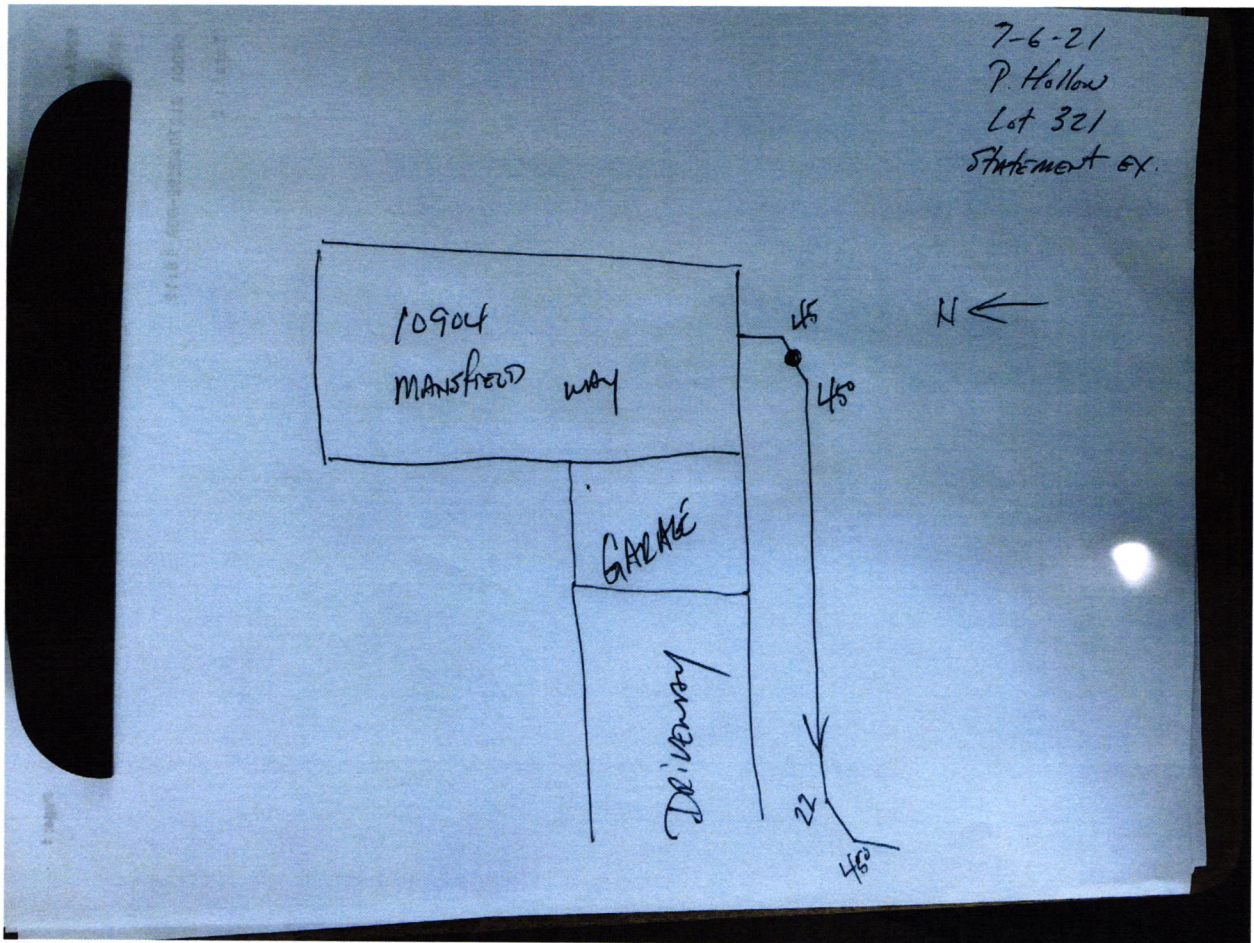 7-6-21
P. Hollow
Lot 321
Statement ex.
10904
Mansfield Way
45
N
45°
Garage
Driveway
22
45°
Page 1